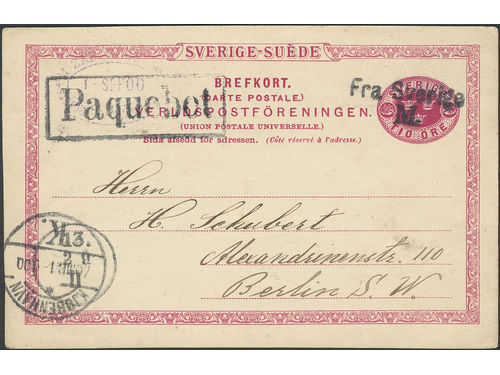 SVERIGE-SUÈDE
BREFKORT.
(CARTE POSTALE.)
VERLDSPOSTFÖRENINGEN.
(UNION POSTALE UNIVERSELLE.)
Sida afsedd för adressen. (Côté réservé à l'adresse.)
Paquebot
Fra Sverige
M.
SVERIGE
10 ÖRE
Herrn
H. Schubert
Alexandrinenstr. 110
Berlin S. W.
K.
13.
KJØBENHAVN